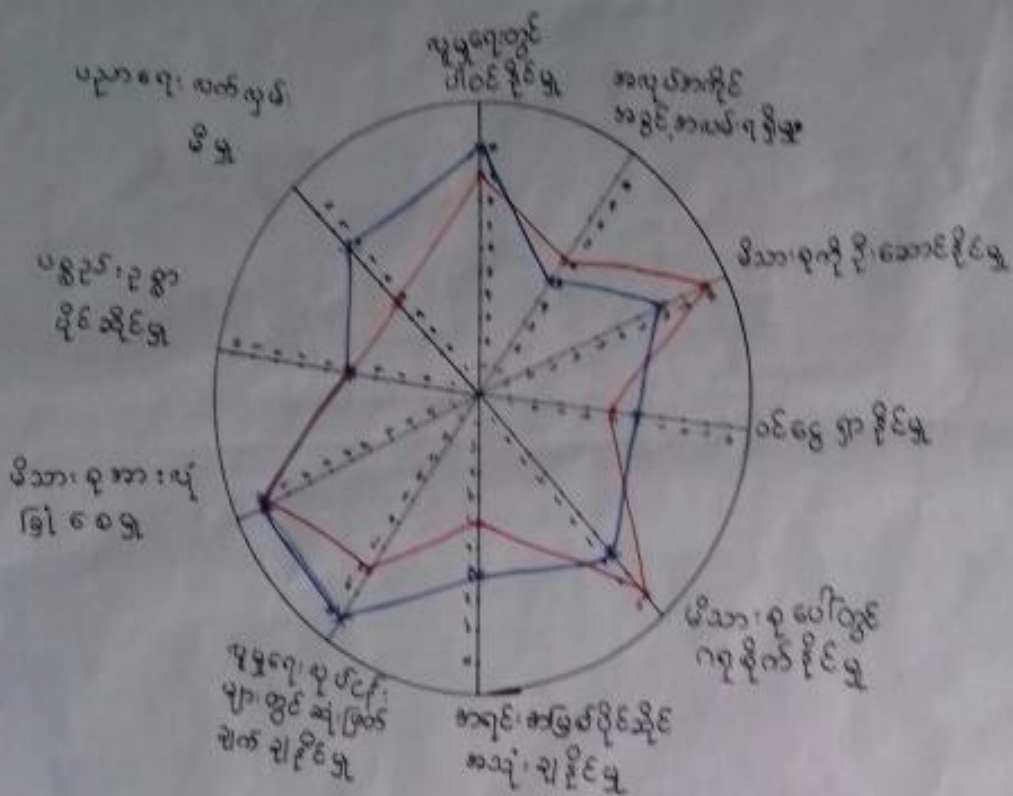 လူမှုရေးတွင်
ပါဝင်နိုင်မှု
အလုပ်အကိုင်
အခွင့်အလမ်းရရှိမှု
မိသားစုကို ဦးဆောင်နိုင်မှု
ဝင်ငွေ ရှာနိုင်မှု
မိသားစုပေါ်တွင်
ဂရုစိုက်နိုင်မှု
အရင်းအမြစ်ပိုင်ဆိုင်
အသုံးချနိုင်မှု
လူမှုရေးလုပ်ငန်း
များတွင်ဆုံးဖြတ်
ချက်ချနိုင်မှု
မိသားစုအားလုံး
ခြုံစေမှု
ပစ္စည်းဥစ္စာ
ပိုင်ဆိုင်မှု
ပညာရေး လက်လှမ်း
မီမှု